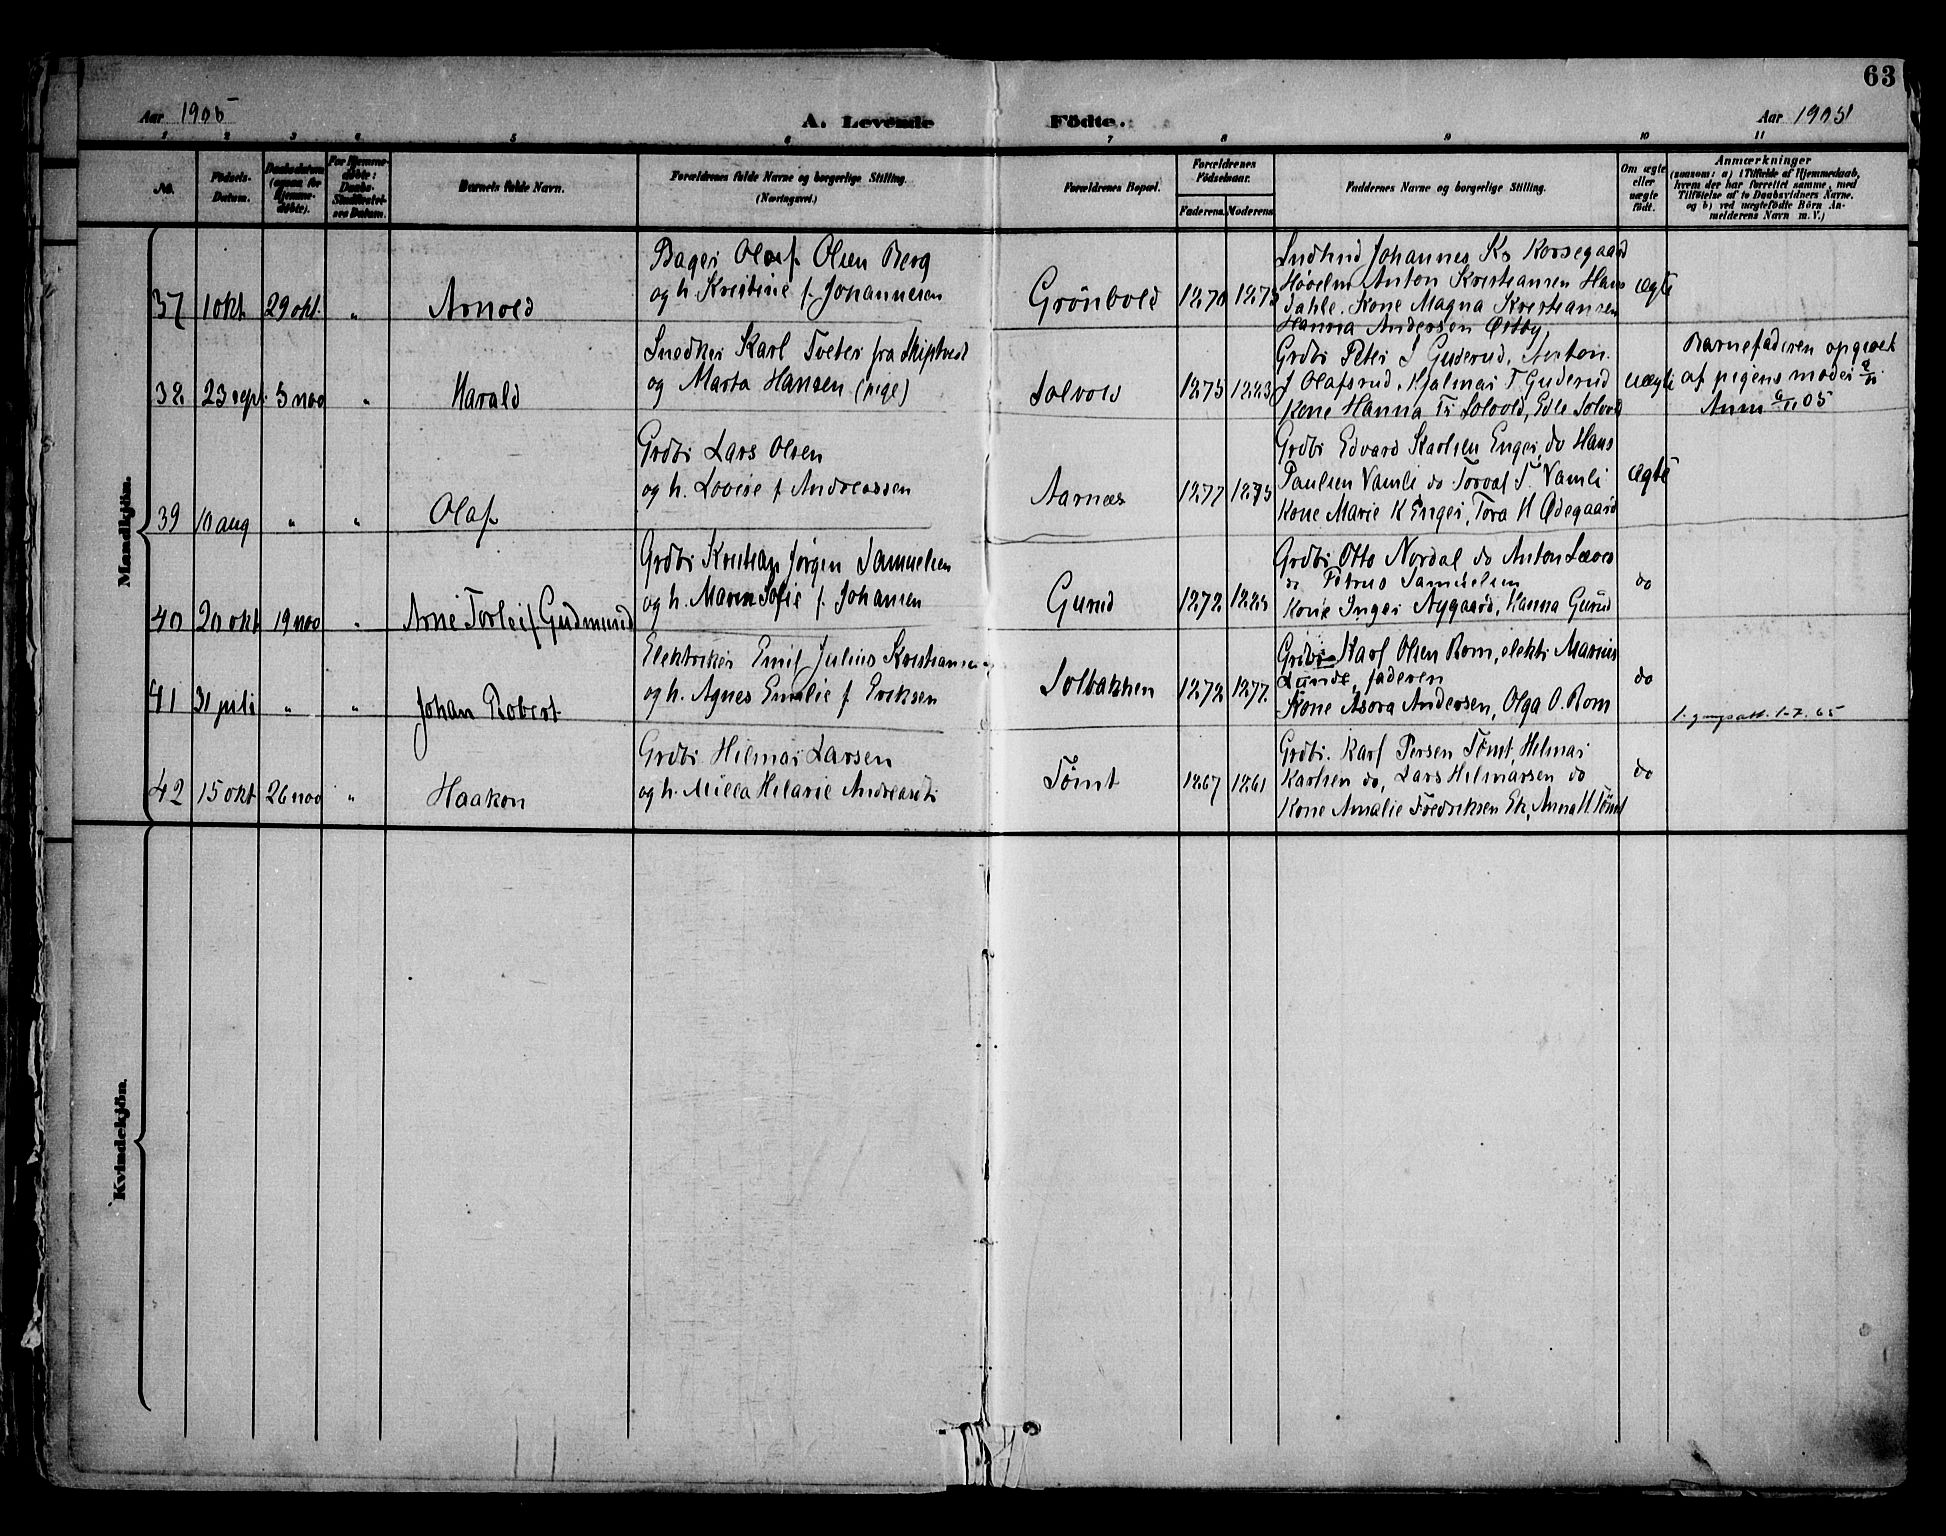 63
Aar 1905 A. Levende Födte. Aar 1905
1 2 3 4 5 6 7 8 9 10 11
No.
Födsels-
Datum.
Daabsdatum
(ogsaa for
Hjemme-
döbte).
For Hjemme-
döbte:
Daabs-
Stadfæstel-
ses Datum.
Barnets fulde Navn.
Forældrenes fulde Navne og borgerlige Stilling.
(Næringsvei.)
Forældrenes Bopæl.
Forældrenes
Födselsaar.
Faderens. Moderens.
Faddernes Navne og borgerlige Stilling.
Om ægte
eller
uægte
födt.
Anmærkninger
(saasom: a) i Tilfælde af Hjemmedaab,
hvem der har forrettet samme, med
Tilföielse af to Daabsvidners Navne,
og b) ved uægtefödte Börn An-
melderens Navn m. V.)
Mandkjön.
37 1 okt 29 okt. " Arnold
Bager Olaf Olsen Berg
og h. Kristine f. Johannesen
Grönbold 1870 1875
Johannes Ks Korsegaard
Anton Kristiansen Haus
Dahle. Kone Magna Kristiansen
Hanna Andersen Østby
ægte
38 23 sept. 5 nov " Harald
Snedker Karl Tveter fra Skiptvedt
og Marta Hansen (pige)
Solvold 1875 1883
Grdbr Peter J Guderud, Anton
J Olafsrud, Hjalmar T Guderud
Kone Hanna Tr Solvold, Edle Solvold
uægte
Barnefaderen opgivet
af pigens moder
Anm 6/11 05
39 10 aug " " Olaf
Grdbr Lars Olsen
og h. Lovise f Andreassen
Aarnæs 1877 1875
Grdbr Edvard Karlsen Enger, do Hans
Paulsen Vamli do Torval T. Vamli
Kone Marie K Enger, Tora H Ødegaard
ægte
40 20 okt 19 nov " Arne Torleif Gudmund
Grdbr Kristian Jørgen Samuelsen
og h. Maren Sofie f. Johansen
Gurud 1872 1885
Grdbr Otto Nordal do Anton
do Petrus Samuelsen
Kone Inger Nygaard, Hanna Gurud
do
41 31 juli " " Johan Robert
Elektriker Emil Julius Kristiansen
og h. Agnes Emilie f Eriksen
Solbakken 1872 1877
Grdbr Karl Olsen Rom, elektr Marius
Lunde, faderen
Kone Asora Andersen, Olga O. Rom
do
1-7. 65
42 15 okt 26 nov " Haakon
Grdbr Hilmar Larsen
og h. Milla Hilarie Andreasdtr
Tömt 1867 1861
Grdbr. Karl Persen Tömt, Helmar
Karlsen do, Lars Hilmarsen do
Kone Amalie Fredriksen Ek, Anna H. Tömt
do
Kvindekjön.